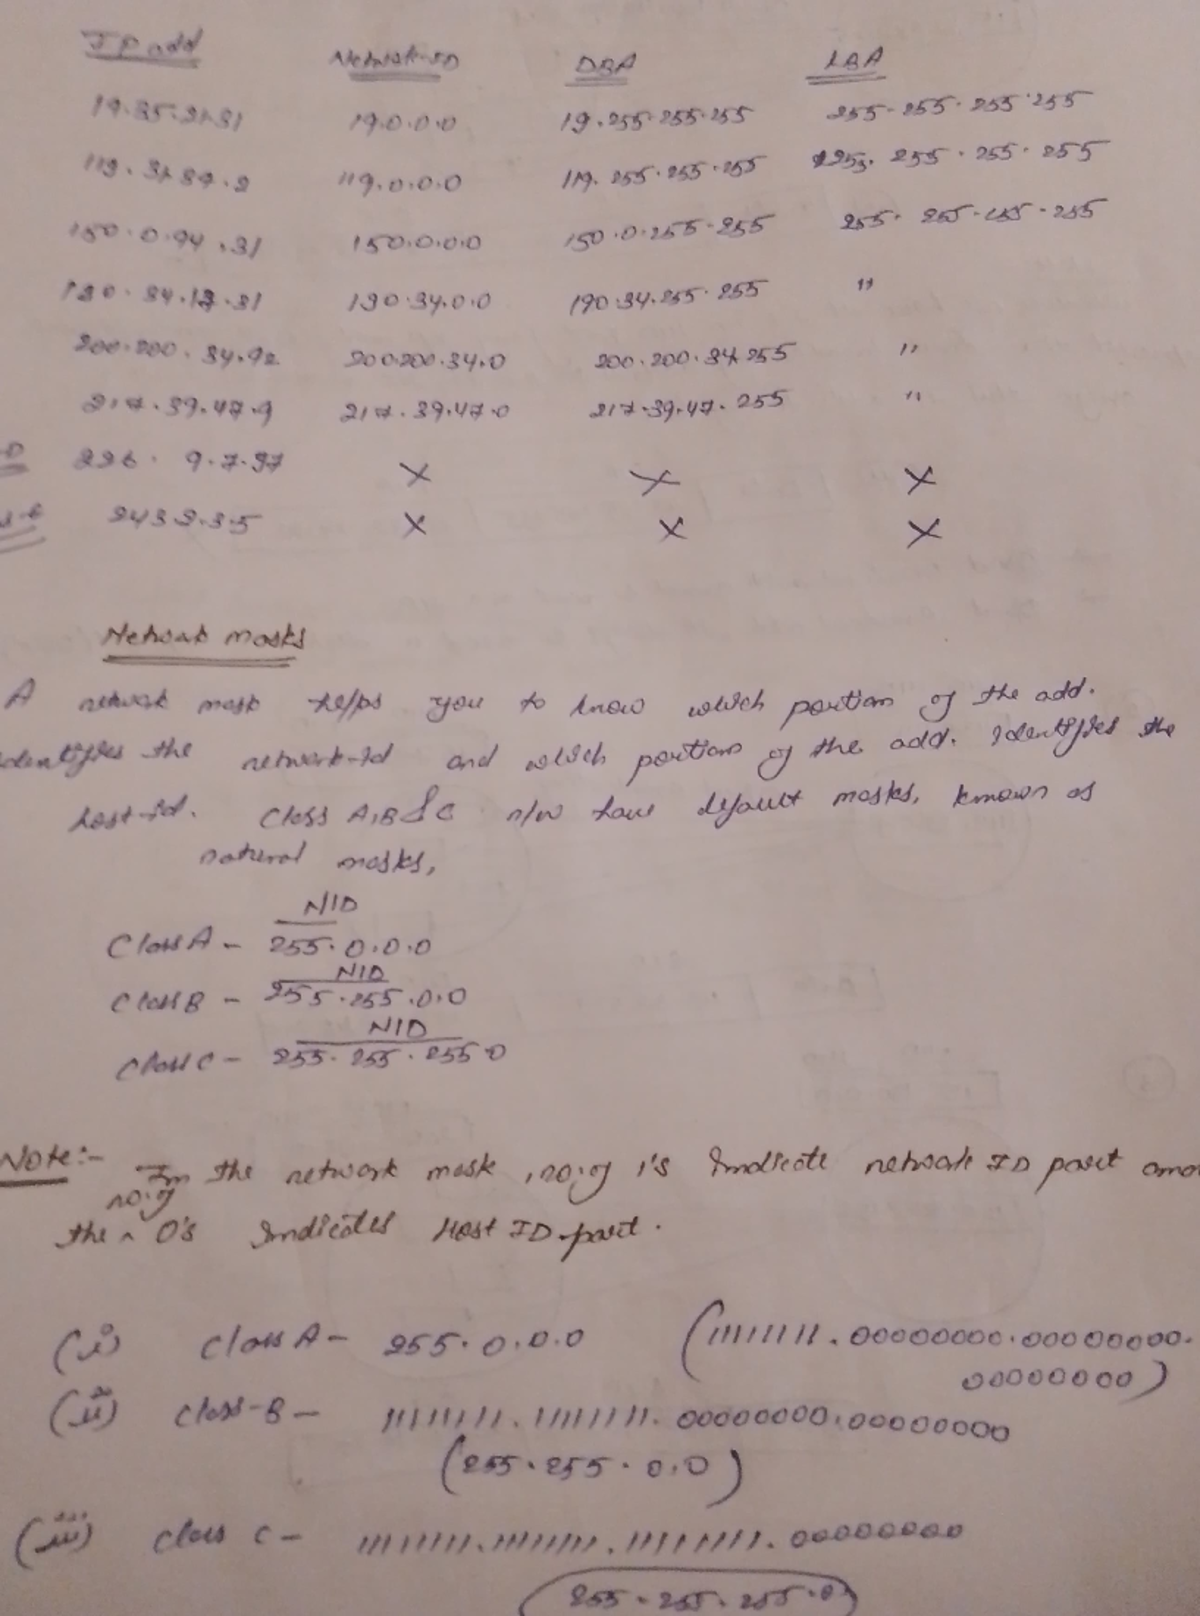 IP add Network-ID DBA LBA
19.35.21.31 19.0.0.0 19.255.255.255 255.255.255.255
119.31.37.2 119.0.0.0 119.255.255.255 255.255.255.255
150.0.94.31 150.0.0.0 150.0.255.255 255.255.255.255
190.34.12.31 190.34.0.0 190.34.255.255 "
200.200.34.92 200.200.34.0 200.200.34.255 "
217.39.47.9 217.39.47.0 217.39.47.255 "
226.9.7.37 X X X
243.2.3.5 X X X
Network masks
A network mask helps you to know which portion of the add.
identifies the network-id and which portion of the add. identifies the
host-id. Class A,B & C n/w have default masks, known as
natural masks,
NID
Class A - 255.0.0.0
NID
Class B - 255.255.0.0
NID
Class C - 255.255.255.0
Note:- In the network mask, no.of 1's indicate network ID part and
the no.of 0's indicates Host ID part.
(i) Class A - 255.0.0.0 (11111111.00000000.00000000.
00000000)
(ii) Class-B - 11111111.11111111.00000000.00000000
(255.255.0.0)
(iii) Class C - 11111111.11111111.11111111.00000000
255.255.255.0